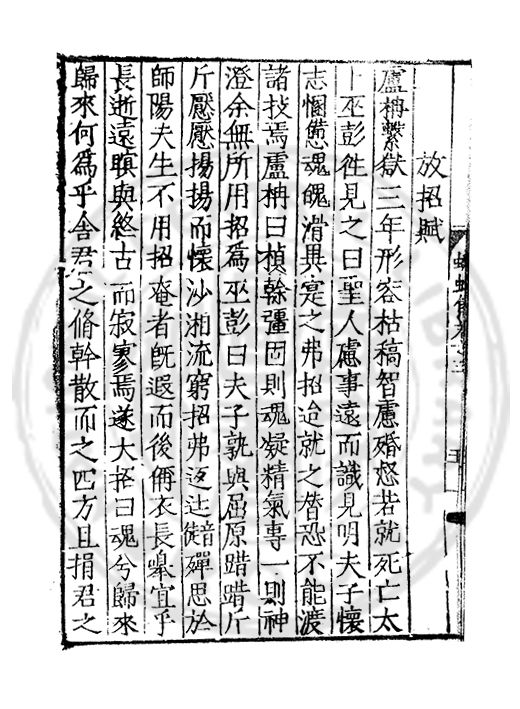 放招賦
盧柟繫獄三年形容枯稿智慮殙怒若就死亡太
卜巫彭徃見之曰聖人慮事遠而識見明夫子懷
志悃愊魂魄滑異寔之弗招迨就之朁恐不能渡
諸技焉盧柟曰楨榦彊固則魂凝精氣專一則神
澄余無所用招爲巫彭曰夫子孰與屈原踖踖斤
斤壓壓揚揚而懷沙湘流窮招弗返辻徒殫思於
師陽夫生不用招奄者旣遐而後侢衣長皋宜乎
長逝遠瞑與終古而寂寥焉遂大招曰魂兮歸來
歸來何爲乎舍君之脩幹散而之四方且捐君之
蠛蠓集卷之三
五